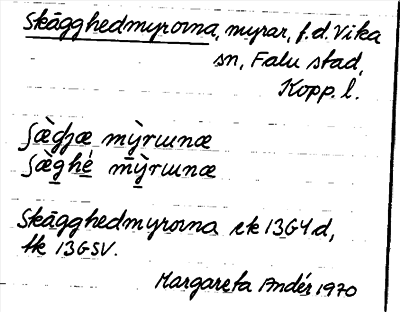 Skägghedmyrorna, myrar, f.d. Vika
sn, Falu stad,
Kopp. l.
ʃæ̀gjæ mỳrɯnæ
ʃæ̀ghé mỳrɯnæ
Skägghedmyrorna rk 13G4d,
tk 13GSV.
Margareta Andér 1970